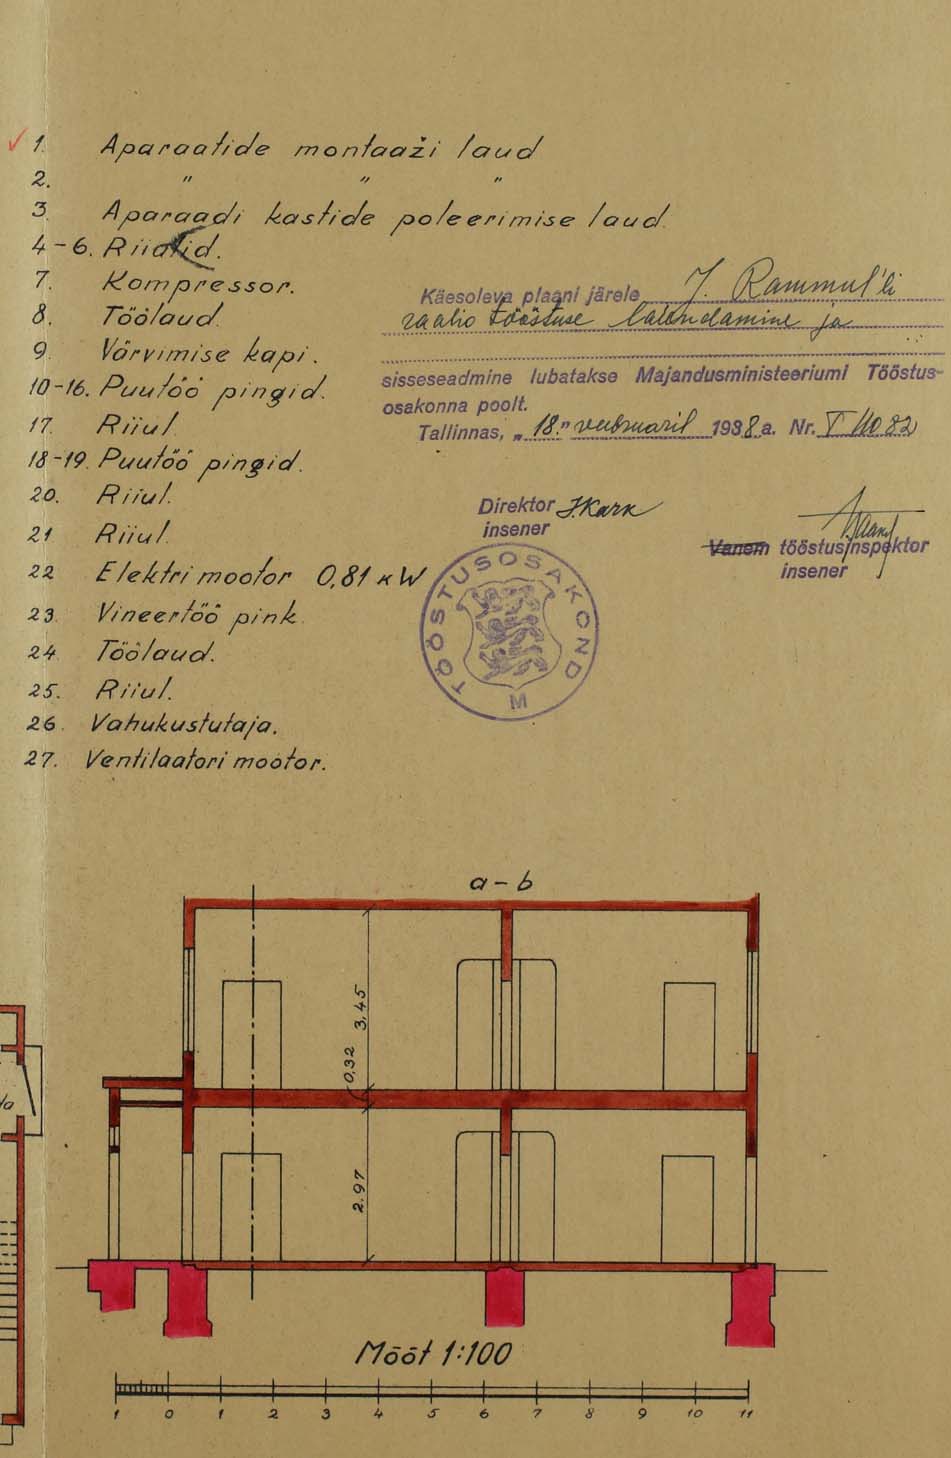 1. Aparaatide montaaži laud
2. " " "
3. Aparaadi kastide poleerimise laud.
4-6. Riiulid.
7. Kompressor.
8. Töölaud.
9. Värvimise kapi.
10-16. Puutöö pingid.
17. Riiul.
18-19. Puutöö pingid.
20. Riiul.
21. Riiul.
22. Elektri mootor 0,81 kW
23. Vineertöö pink.
24. Töölaud.
25. Riiul.
26. Vahukustutaja.
27. Ventilaatori mootor.
Käesoleva plaani järele J. Rammul'li
raadio tööstuse laiendamine ja
sisseseadmine lubatakse Majandusministeeriumi Tööstus-
osakonna poolt.
Tallinnas, „18." veebruaril 1938 a. Nr.
Direktor J. Kark
insener
Vanem tööstusinspektor
insener
TÖÖSTUSOSAKOND
M
a-b
3,45
0,32
2.97
Mõõt 1:100
1 0 1 2 3 4 5 6 7 8 9 10 11